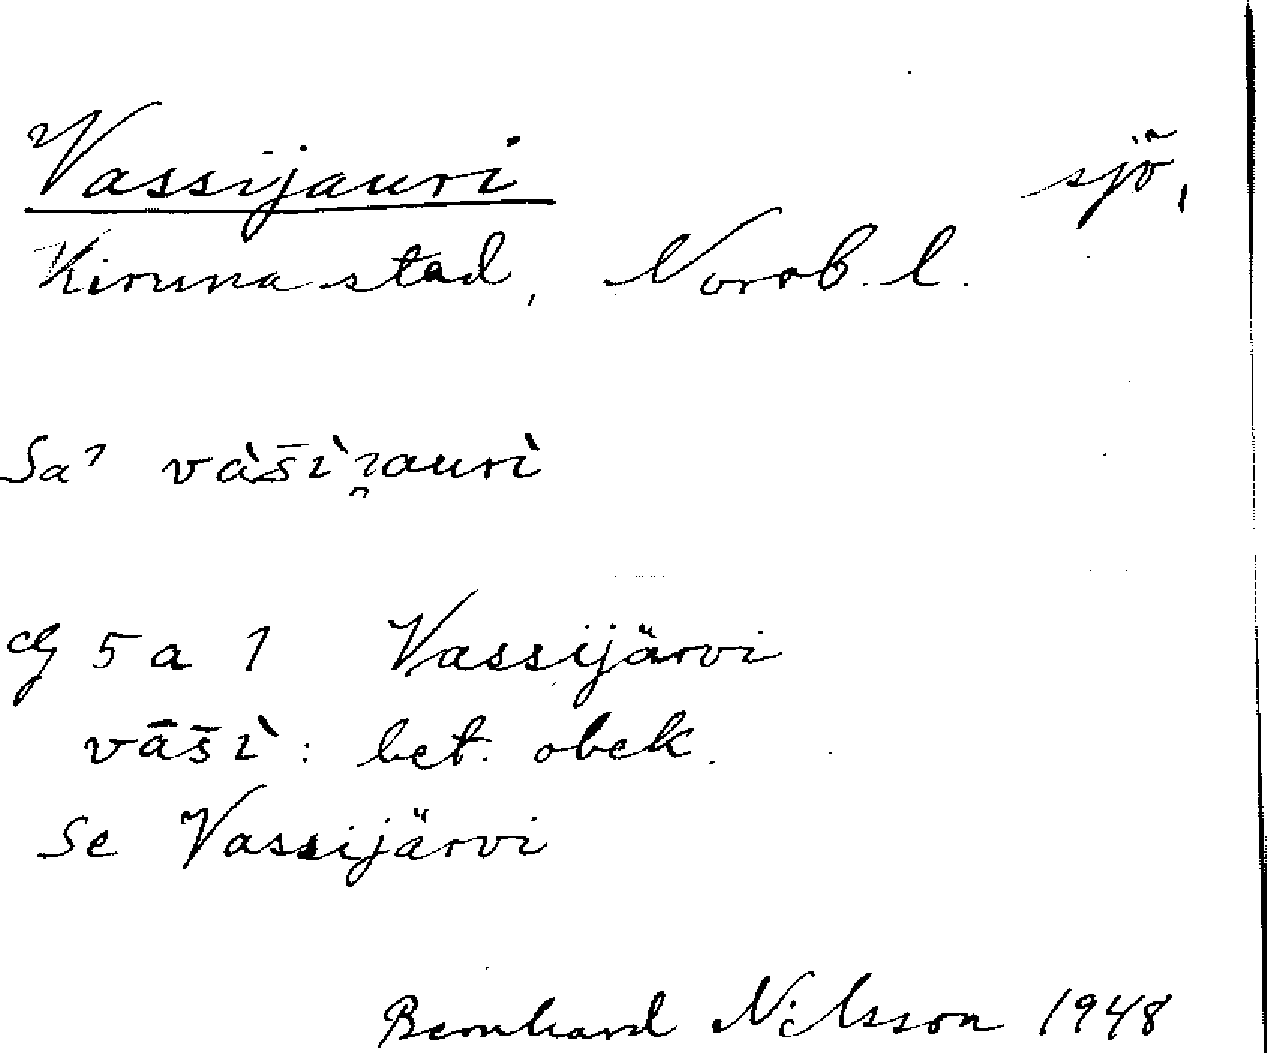 Vassijauri sjö,
Kiruna stad, Norrb. l.
Sa? vàs̄ìi̯auri
G 5 a 1 Vassijärvi
vās̄ì: bet. obek.
Se Vassijärvi
Bernhard Nilsson 1948